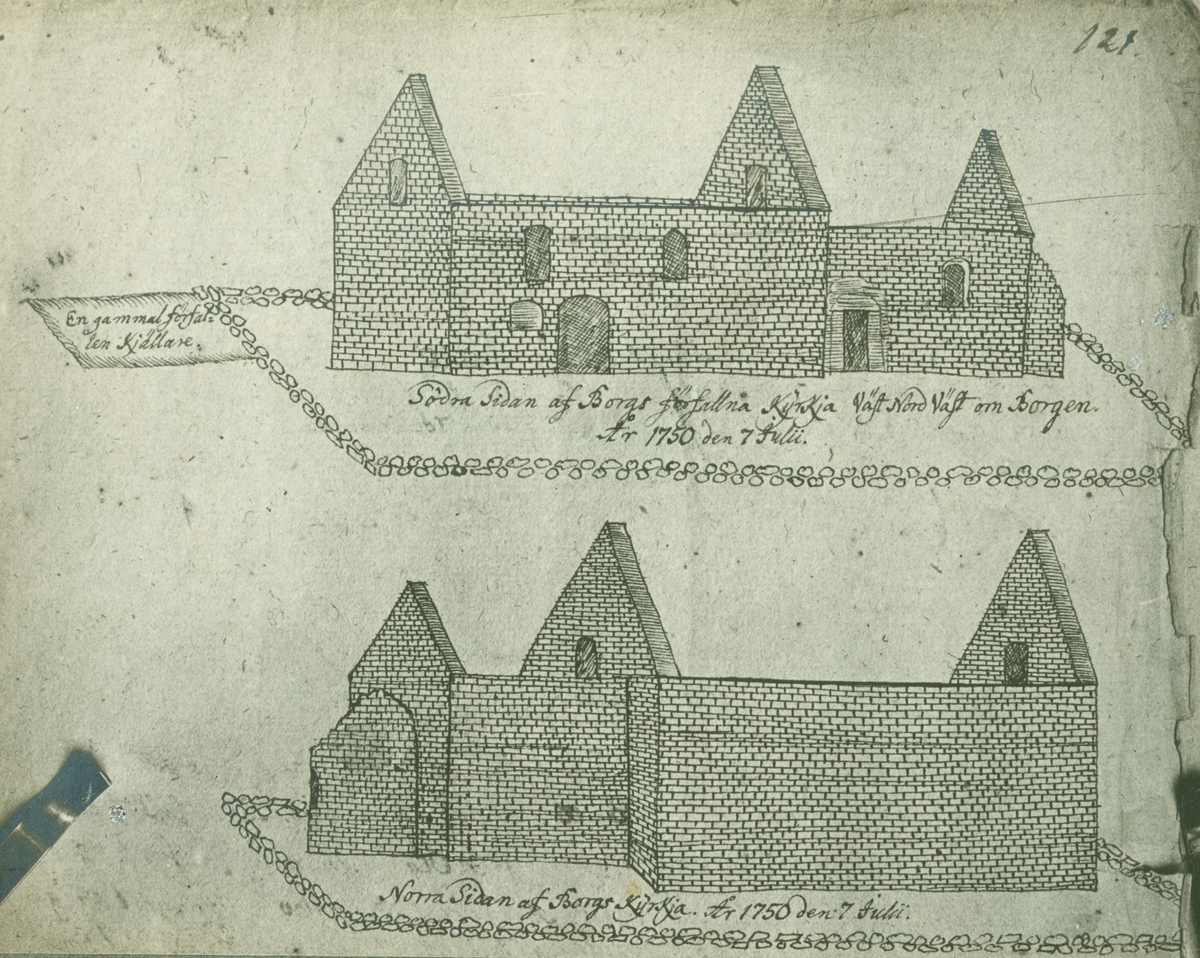 121.
En gammal förfal=
len Kjällare.
Södra Sidan af Borgs förfallna Kyrkja Väst Nord Väst om Borgen.
År 1750 den 7 Julii.
Norra Sidan af Borgs Kyrkja. År 1750 den 7 Julii.